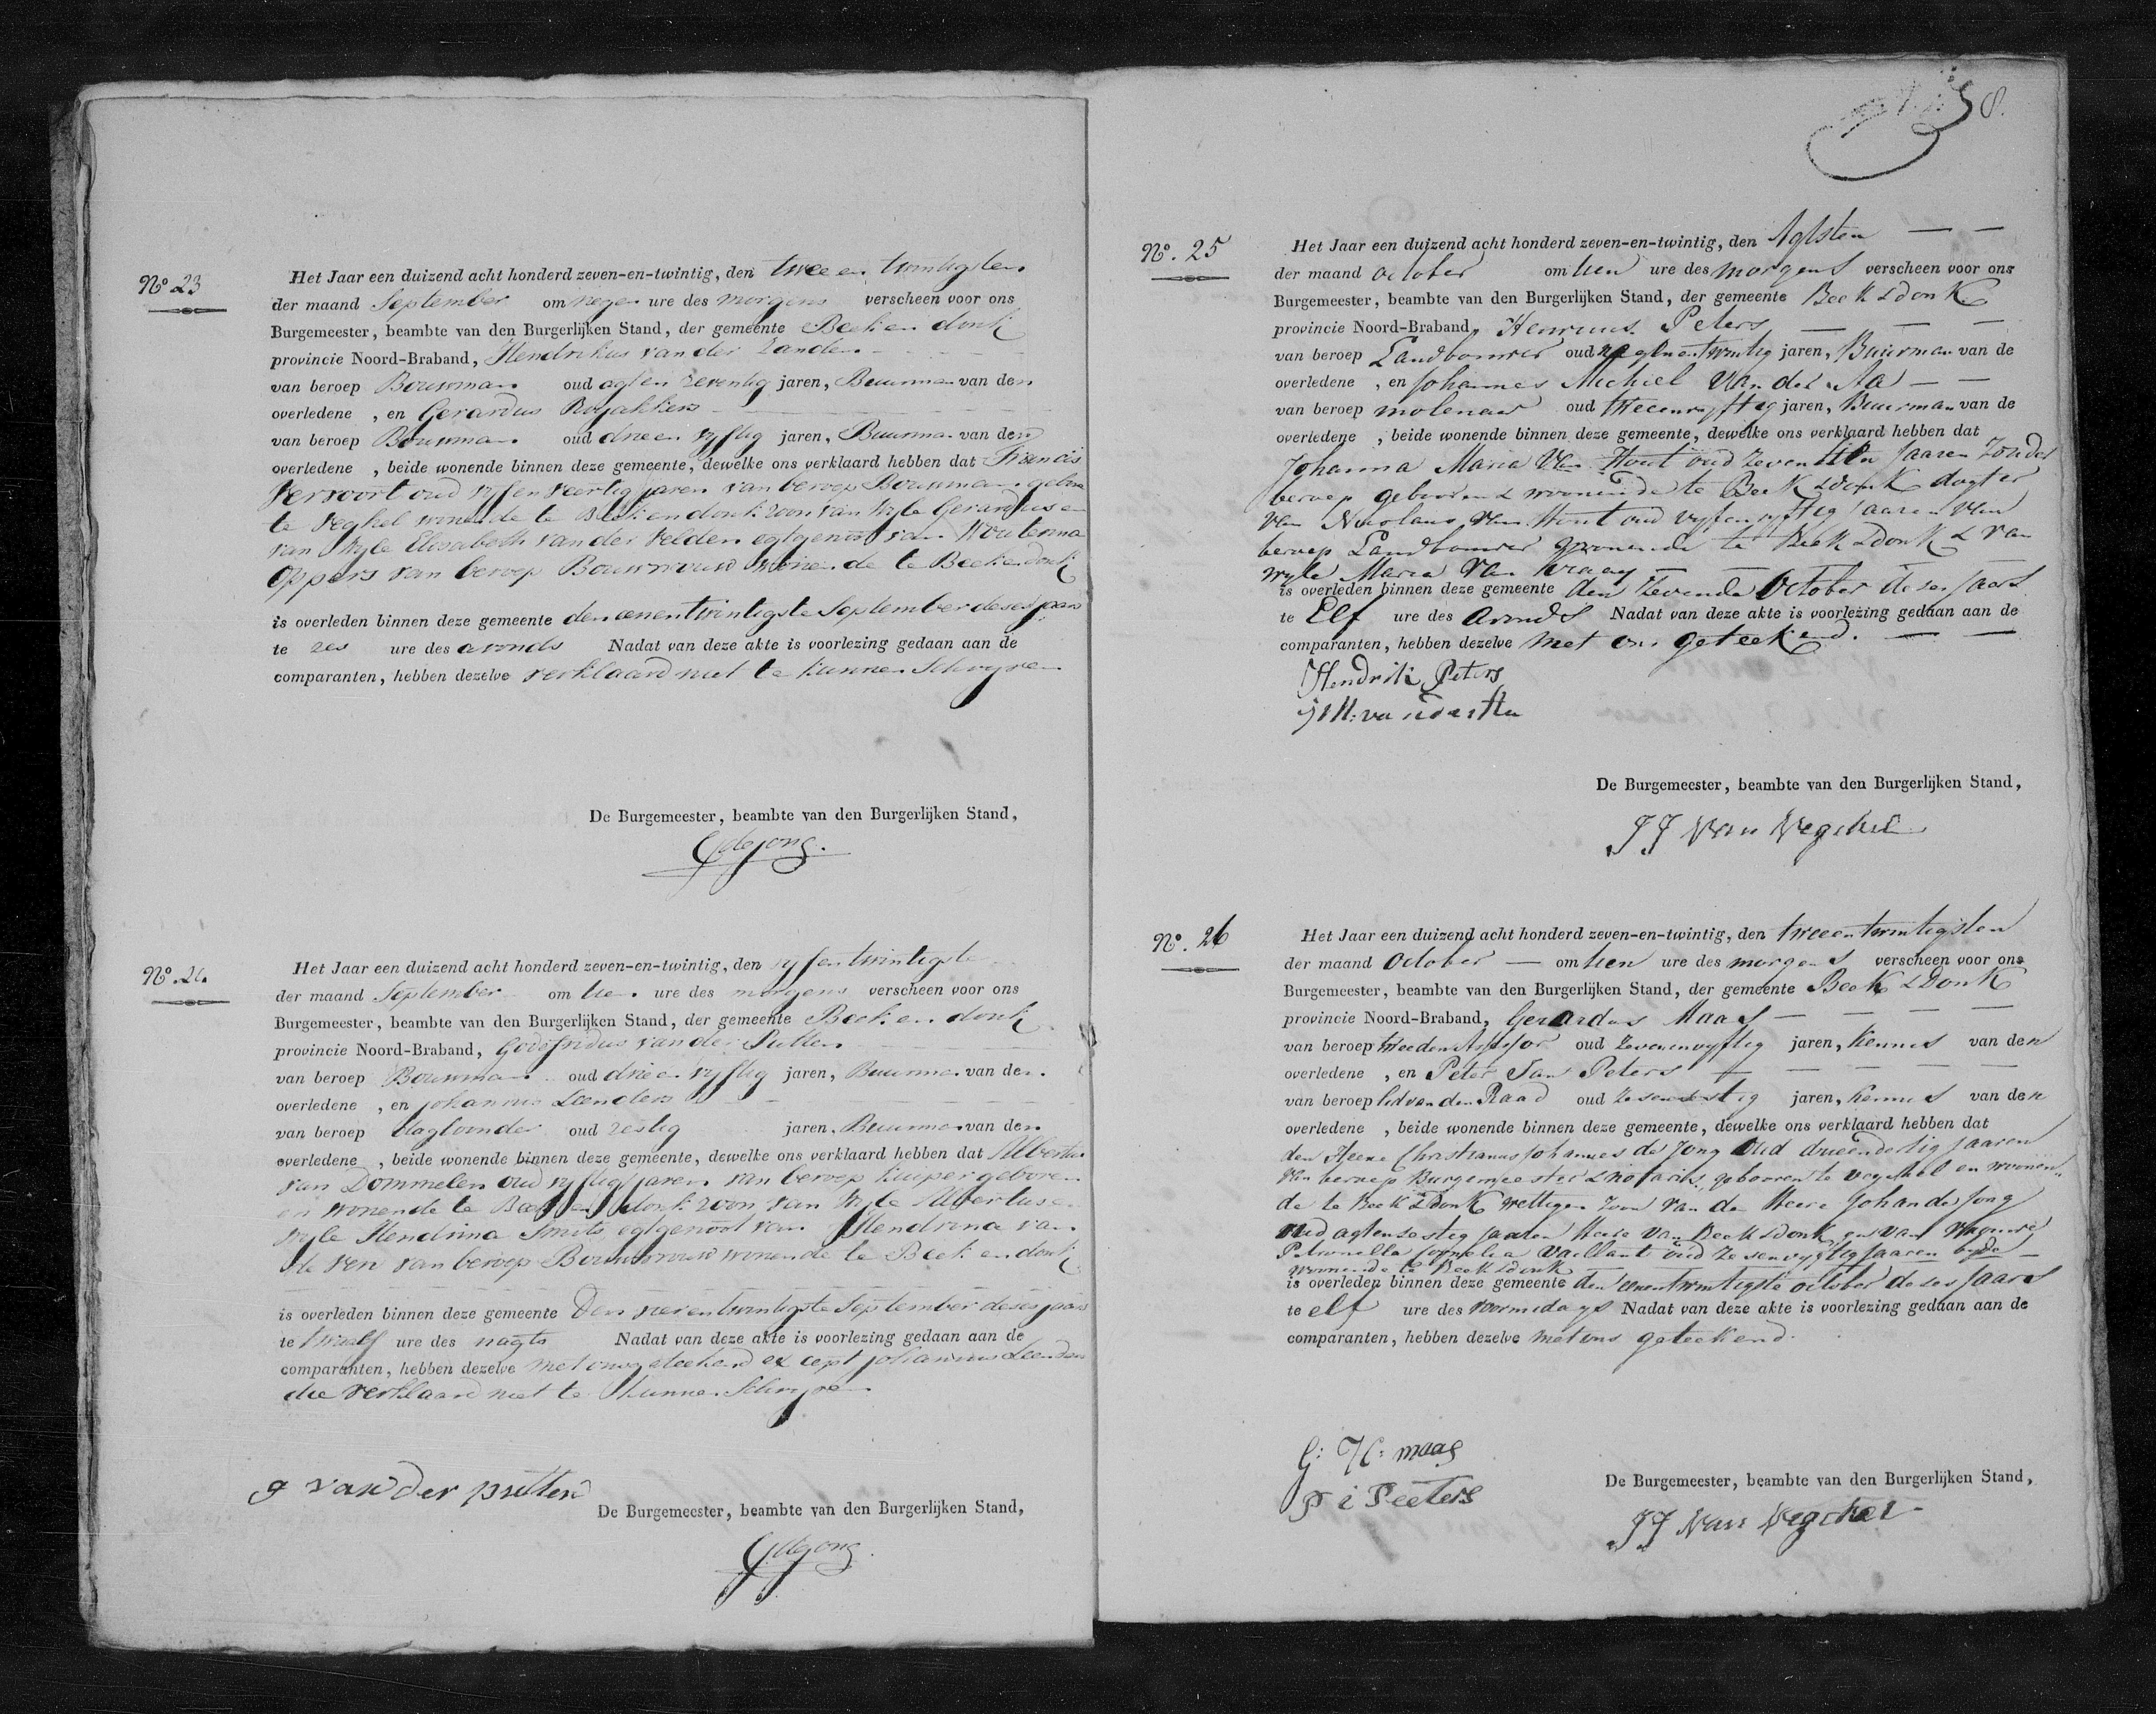 8.
No. 23
Het Jaar een duizend acht honderd zeven-en-twintig, den twee en twintigsten
der maand September om negen ure des morgens verscheen voor ons
Burgemeester, beambte van den Burgerlijken Stand, der gemeente Beek en donk
provincie Noord-Braband, Hendrikus van der Zanden
van beroep Bouwman oud agt en zeventig jaren, Buurman van den
overledene , en Gerardus Royakkers
van beroep Bouwman oud drie en vyftig jaren, Buurman van den
overledene , beide wonende binnen deze gemeente, dewelke ons verklaard hebben dat Francis
Vervoort oud vyf en veertig jaren van beroep Bouwman gebore
te Veghel wonende te Beek en donk zoon van wyle Gerardus en
van wyle Elisabeth van der Velden egtgenoot van Wouterina
Oppers van beroep Bouwvrouw wonende te Beek en donk
is overleden binnen deze gemeente den eenentwintigste September deses jaars
te zes ure des avonds Nadat van deze akte is voorlezing gedaan aan de
comparanten, hebben dezelve verklaard niet te kunnen Schryven
De Burgemeester, beambte van den Burgerlijken Stand,
CJdeJong.
No. 24
Het Jaar een duizend acht honderd zeven-en-twintig, den vyfentwintigste
der maand September om tien ure des morgens verscheen voor ons
Burgemeester, beambte van den Burgerlijken Stand, der gemeente Beek en donk
provincie Noord-Braband, Godefridus van der Putten
van beroep Bouwman oud drie en vyftig jaren, Buurman van den
overledene , en Johannis Leenders
van beroep dagloonder oud zestig jaren, Buurman van den
overledene , beide wonende binnen deze gemeente, dewelke ons verklaard hebben dat Albertus
van Dommelen oud vyftig jaren van beroep kuiper geboren
en wonende te Beek en donk zoon van wyle Albertus en
wyle Hendrina Smits egtgenoot van Hendrina van
de Ven van beroep Bouwvrouw wonende te Beek en donk
is overleden binnen deze gemeente Den vierentwintigste September deses jaars
te twaalf ure des nagts Nadat van deze akte is voorlezing gedaan aan de
comparanten, hebben dezelve met ons geteekend except johannis Leenders
die verklaard niet te kunnen Schryven
g van der putten
De Burgemeester, beambte van den Burgerlijken Stand,
CJdeJong.
No. 25
Het Jaar een duizend acht honderd zeven-en-twintig, den Agtsten
der maand October om tien ure des morgens verscheen voor ons
Burgemeester, beambte van den Burgerlijken Stand, der gemeente Beek & donk
provincie Noord-Braband, Henricus Peters
van beroep Landbouwer oud negenentwintig jaren, Buurman van de
overledene , en Johannes Michiel Van der Aa
van beroep molenaar oud tweeenvyftig jaren, Buurman van de
overledene , beide wonende binnen deze gemeente, dewelke ons verklaard hebben dat
Johanna Maria Van Hout oud zeventien Jaaren Zonder
beroep gebooren & woonende te Beek & donk dogter
van Nicolaus Van Hout oud vyfenvyftig Jaaren van
beroep Landbouwer woonende te Beek & donk & van
wyle Maria Van Kraay
is overleden binnen deze gemeente den zevende October deser Jaars
te Elf ure des avonds Nadat van deze akte is voorlezing gedaan aan de
comparanten, hebben dezelve met ons geteekend.
Hendrik Peters
J M: van der Aa
De Burgemeester, beambte van den Burgerlijken Stand,
JJ Van Veghel
No. 26
Het Jaar een duizend acht honderd zeven-en-twintig, den tweeentwintigsten
der maand October om tien ure des morgens verscheen voor ons
Burgemeester, beambte van den Burgerlijken Stand, der gemeente Beek & Donk
provincie Noord-Braband, Gerardus Maas
van beroep tweeden Assessor oud zevenenvyftig jaren, kennis van den
overledene , en Peter Jan Peters
van beroep lid van den Raad oud zesensestig jaren, kennis van den
overledene , beide wonende binnen deze gemeente, dewelke ons verklaard hebben dat
den Heere Christianus Johannes de Jong Oud drieendertig Jaaren
van beroep Burgemeester & notaris, gebooren te Veghel en woonen
de te Beek & Donk wettigen Zoon van de Heere Johan de Jong
oud agtensestig Jaaren Heere van Beek & donk en van Vrouwe
Petronella Cornelia Vaillant oud zesenvyftig Jaaren byde
woonende te Beek & donk
is overleden binnen deze gemeente den eenentwintigste october deses Jaars
te elf ure des voormidags Nadat van deze akte is voorlezing gedaan aan de
comparanten, hebben dezelve met ons geteekend.
G: H: maas
P i Peeters
De Burgemeester, beambte van den Burgerlijken Stand,
JJ Van Veghel